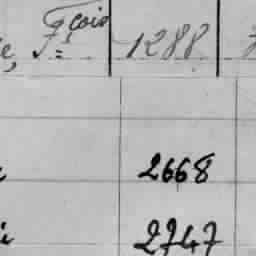 Fçois 1288
2668
2747